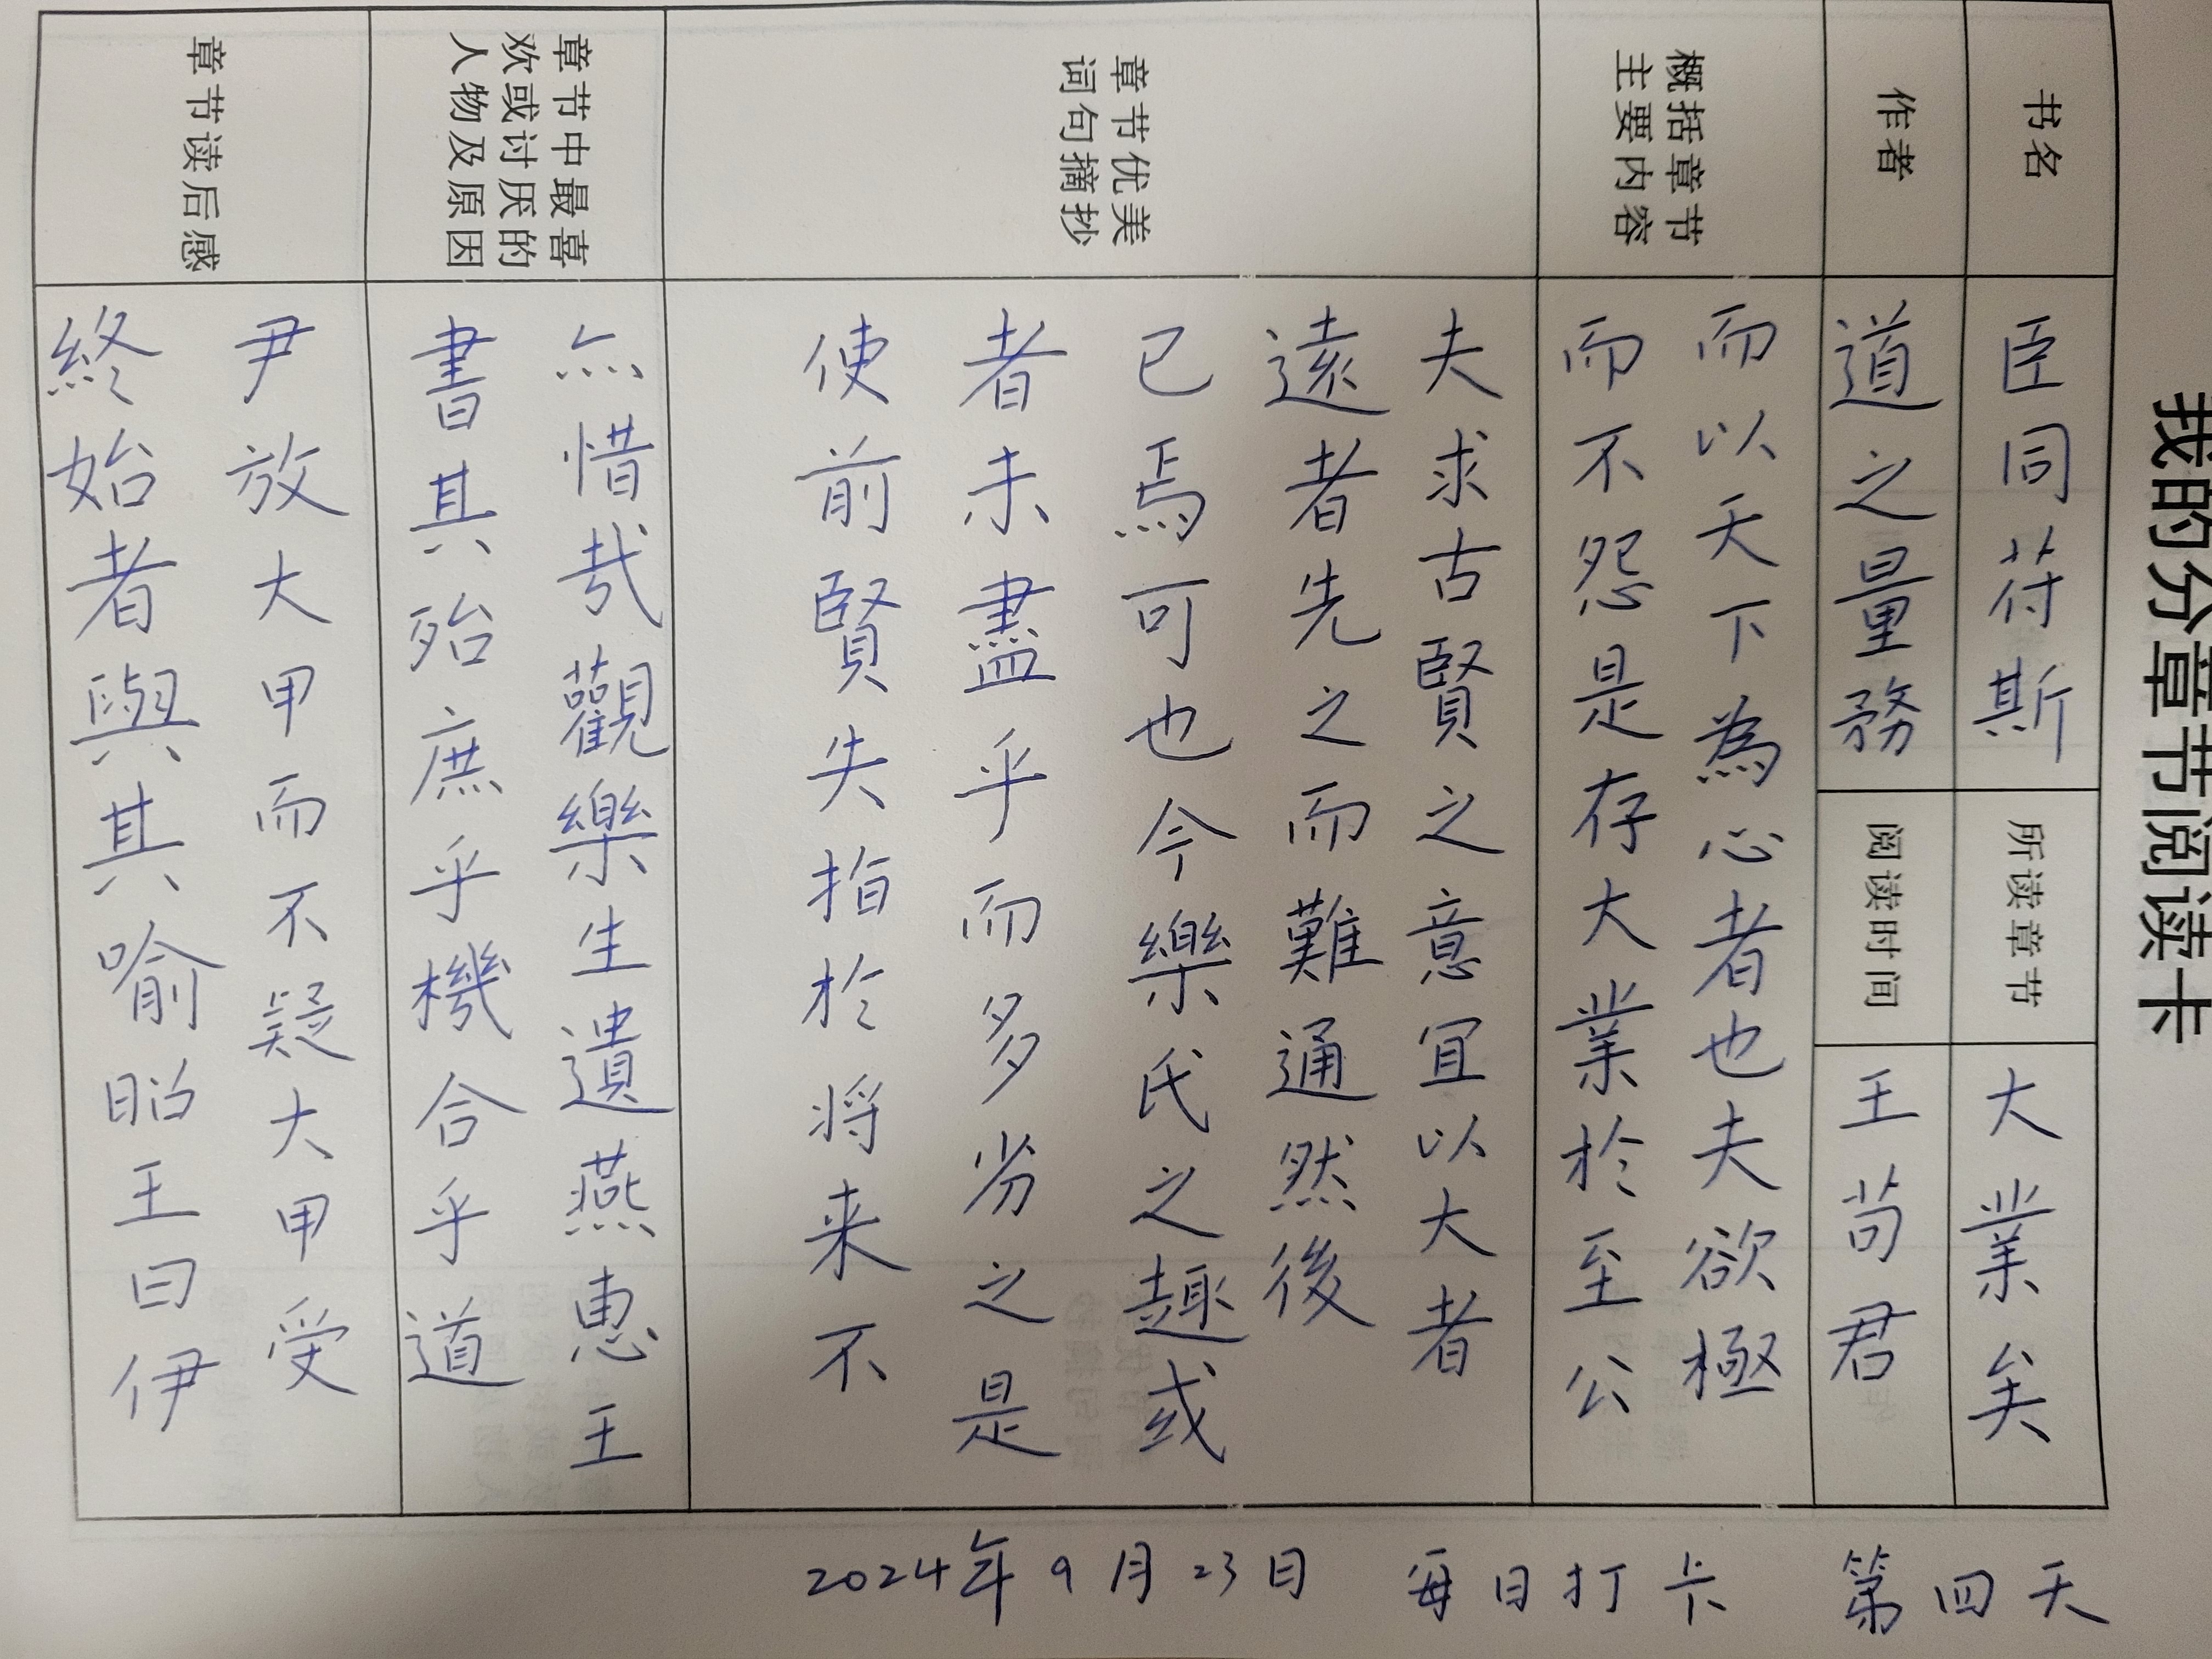 我的分章节阅读卡
书名 臣同符斯 所读章节 大業定矣
作者 道之量務 阅读时间 王苟君
概括章节
主要内容
而以天下為心者也夫欲極
而不怨是存大業於至公
章节优美
词句摘抄
夫求古賢之意宜以大者
遠者先之而難通然後
已焉可也今樂氏之趣或
者未盡乎而多劣之是
使前賢失指於將來不
章节中最喜
欢或讨厌的
人物及原因
亦惜哉觀樂生遺燕惠王
書其殆庶乎機合乎道
章节读后感
尹放大甲而不疑大甲受
終始者與其喻昭王曰伊
2024年9月23日 每日打卡 第四天